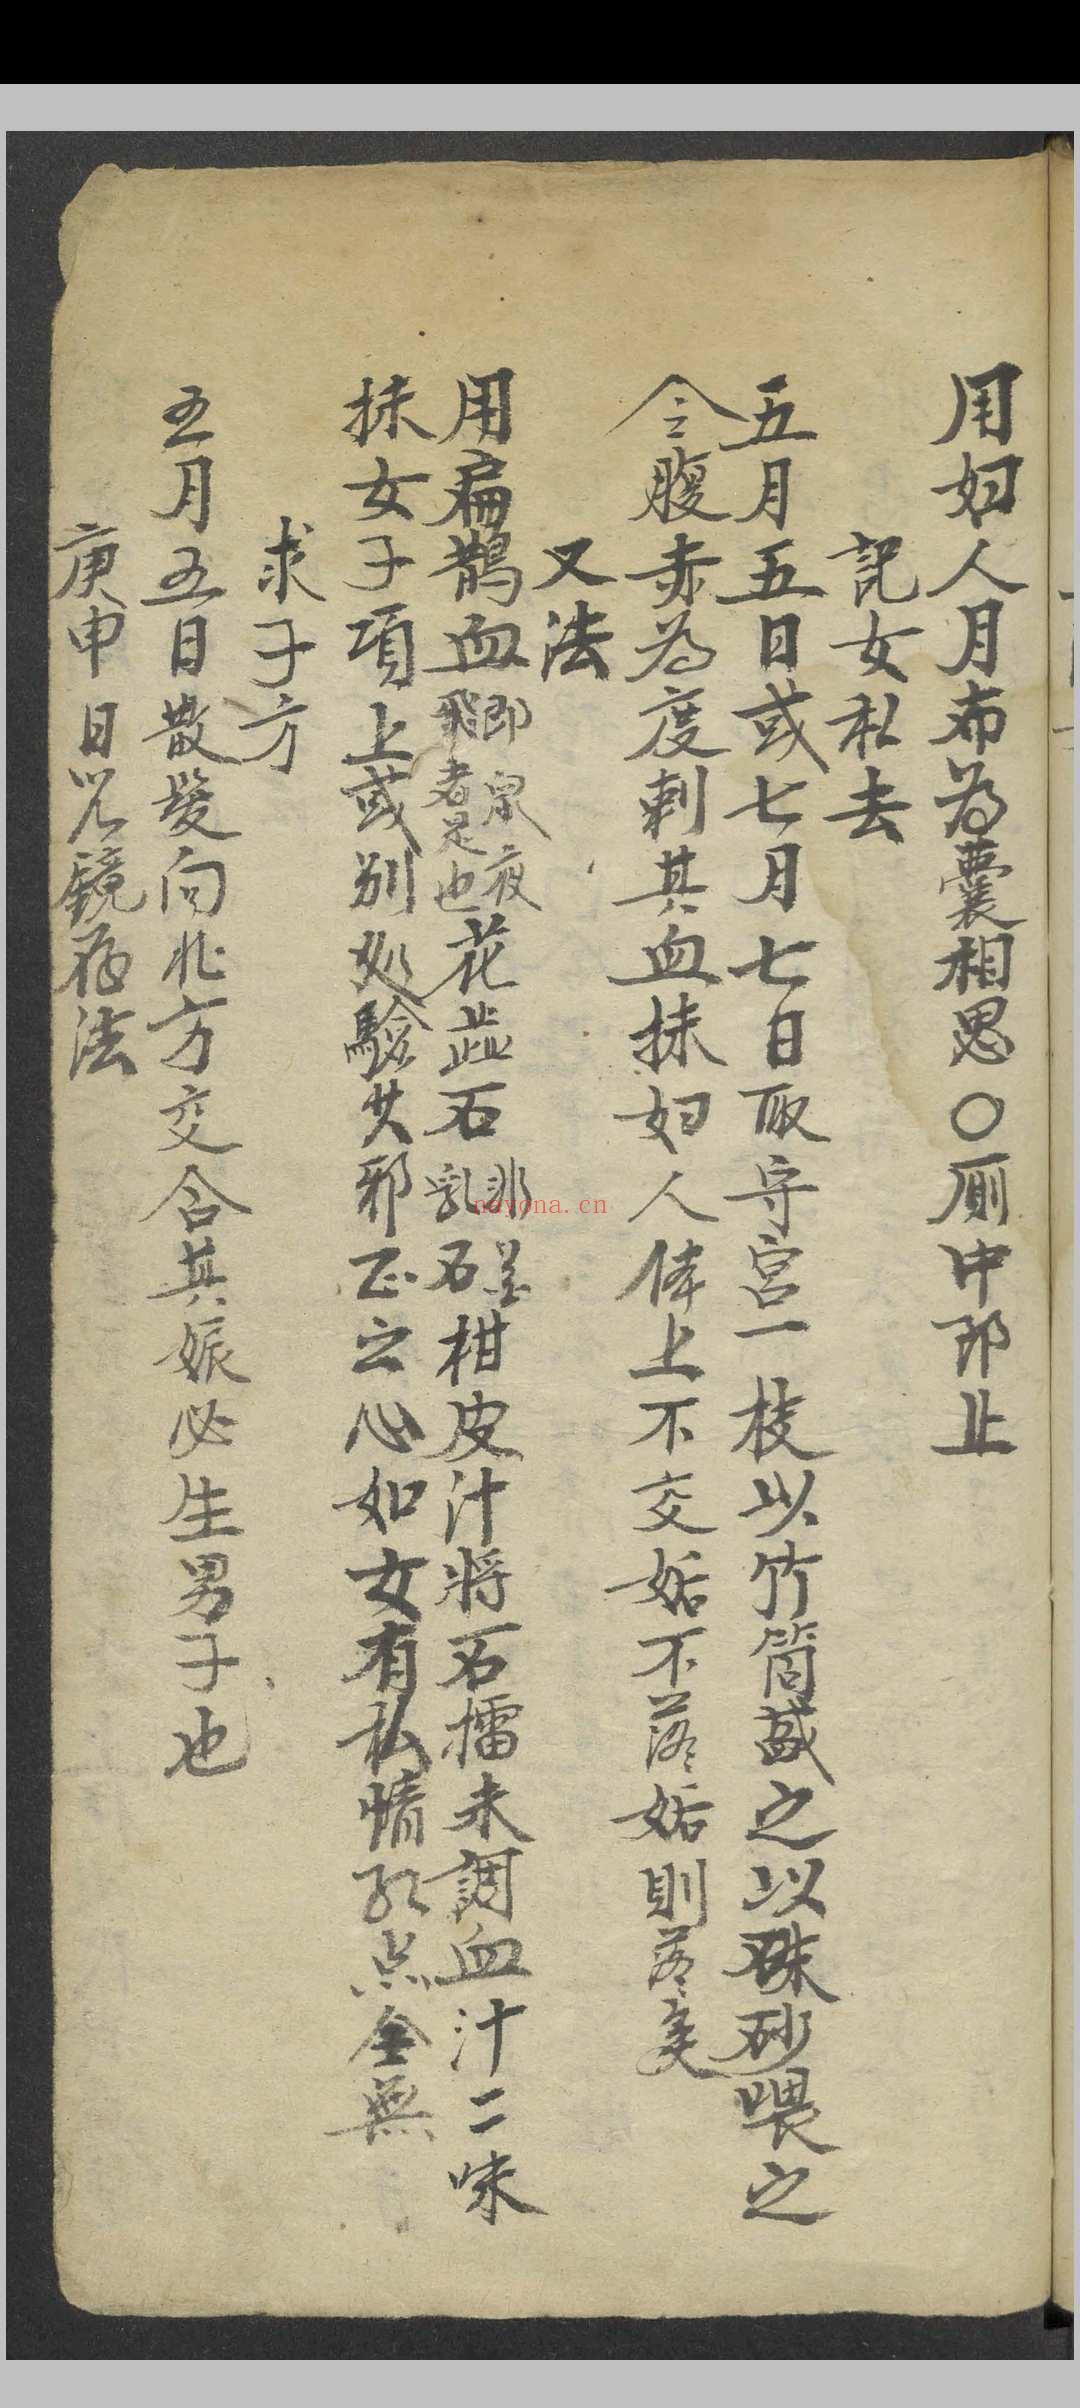 用妇人月布為囊相思〇厠中即止
記女私去
五月五日或七月七日取守宮一枝以竹筒盛之以硃砂喂之
令腹赤為度刺其血抹妇人体上不交姤不落姤則落矣
又法
用扁鵲血即梟夜飛者是也花蕋石非蓝乳石柑皮汁將石擂末調血汁二味
抹女子項上或别処驗其邪正之心如女有私情紅点全無
求子方
五月五日散髮向北方交合其娠必生男子也
庚申日鏡法
nayona.cn